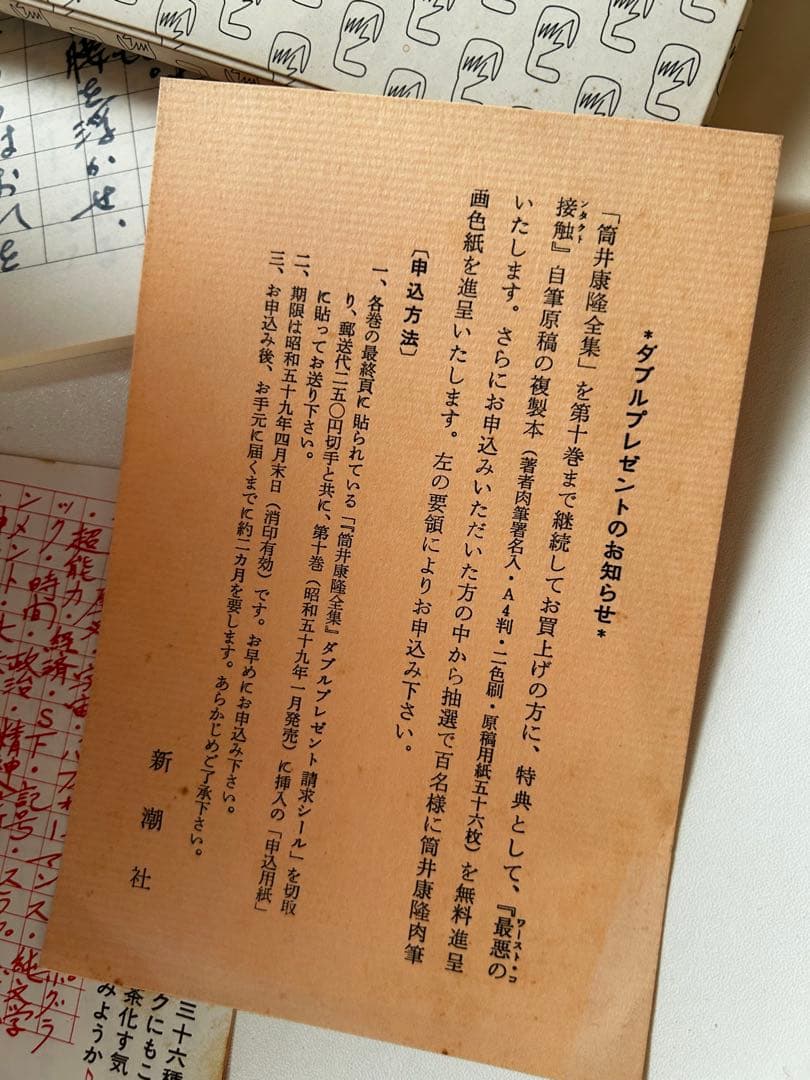 *ダブルプレゼントのお知らせ*
「筒井康隆全集」を第十巻まで継続してお買上げの方に、特典として、『最悪の
ワースト・コ
接触』自筆原稿の複製本（著者肉筆署名入・A4判・二色刷・原稿用紙五十六枚）を無料進呈
ンタクト
いたします。さらにお申込みいただいた方の中から抽選で百名様に筒井康隆肉筆
画色紙を進呈いたします。左の要領によりお申込み下さい。
〔申込方法〕
一、各巻の最終頁に貼られている「『筒井康隆全集』ダブルプレゼント請求シール」を切取
り、郵送代二五〇円切手と共に、第十巻（昭和五十九年一月発売）に挿入の「申込用紙」
に貼ってお送り下さい。
二、期限は昭和五十九年四月末日（消印有効）です。お早めにお申込み下さい。
三、お申込み後、お手元に届くまでに約二カ月を要します。あらかじめご了承下さい。
新潮社
腰を浮かせ、
はおへを
超能力・
時間・経済・SF・記号・スラプ
政治・精神
純文学
三十六種
クにもこ
茶化す気
みようか